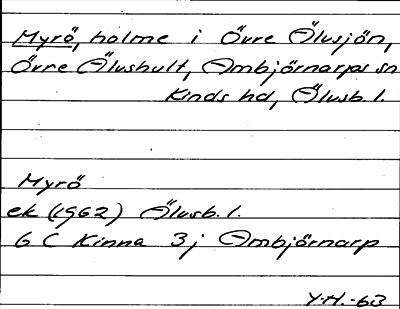 Myrö, holme i Övre Älusjön,
Övre Älushult, Ambjörnarps sn
Kinds hd, Älvsb. l.
Myrö
ek (1962) Älvsb. l.
6 C Kinna 3j Ambjörnarp
Y.H.-63